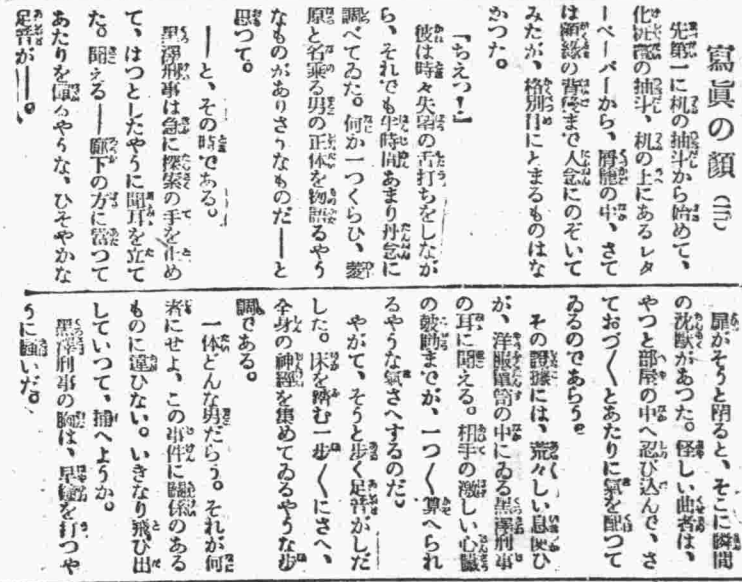 寫眞の顏 (三)
先第一に机の抽斗から始めて、
化粧臺の抽斗、机の上にあるレタ
ーペーパーから、屑籠の中、さて
は額緣の背後まで入念にのぞいて
みたが、格別目にとまるものはな
かつた。
「ちえつ!」
彼は時々失望の舌打ちをしなが
ら、それでも半時間あまり丹念に
調べてゐた。何か一つくらひ、菱
原と名乘る男の正体を物語るやう
なものがありさうなものだ――と
思つて。
――と、その時である。
黑澤刑事は急に探索の手を止め
て、はつとしたやうに聞耳を立て
た。聞える――廊下の方に當つて
あたりを憚るやうな、ひそやかな
足音が――。
扉がそうと閉ると、そこに瞬間
の沈默があつた。怪しい曲者は、
やつと部屋の中へ忍び込んで、さ
ておづ〱とあたりに氣を配つて
ゐるのであらう。
その證據には、荒々しい息使ひ
が、洋服簞笥の中にゐる黑澤刑事
の耳に聞える。相手の激しい心臟
の鼓動までが、一つ〱算へられ
るやうな氣さへするのだ。
やがて、そうと步く足音がしだ
した。床を踏む一步〱にさへ、
全身の神經を集めてゐるやうな步
調である。
一体どんな男だらう。それが何
者にせよ、この事件に關係のある
ものに違ひない。いきなり飛び出
していつて、捕へようか。
黑澤刑事の胸は、早鐘を打つや
うに騷いだ。